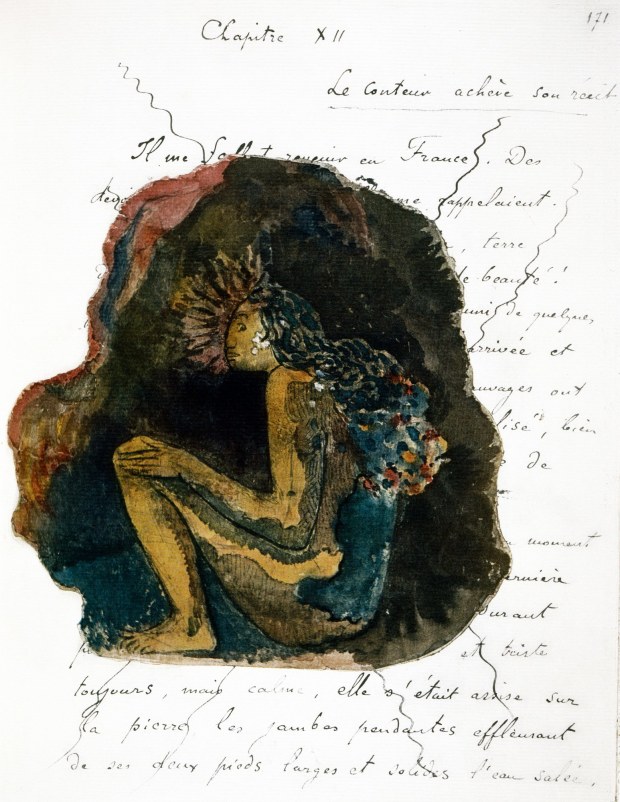 171
Chapitre XII
Le conteur achève son récit
Il me fallut revenir en France. Des
me rappelaient.
terre
de beauté!
de quelques
arrivée et
ont
bien
de
moment
ernière
Durant
et triste
toujours, mais calme, elle s'était assise sur
la pierre, les jambes pendantes effleurant
de ses deux pieds larges et solides l'eau salée.